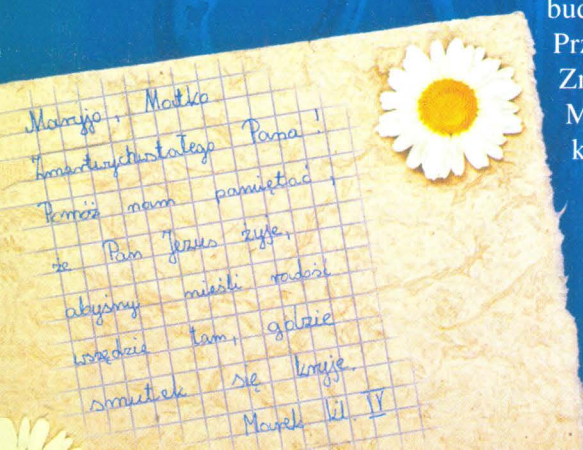 Maryjo, Matko
Zmartwychwstałego Pana!
Pomóż nam pamiętać,
że Pan Jezus żyje,
abyśmy nieśli radość
wszędzie tam, gdzie
smutek się kryje.
Marek kl. IV